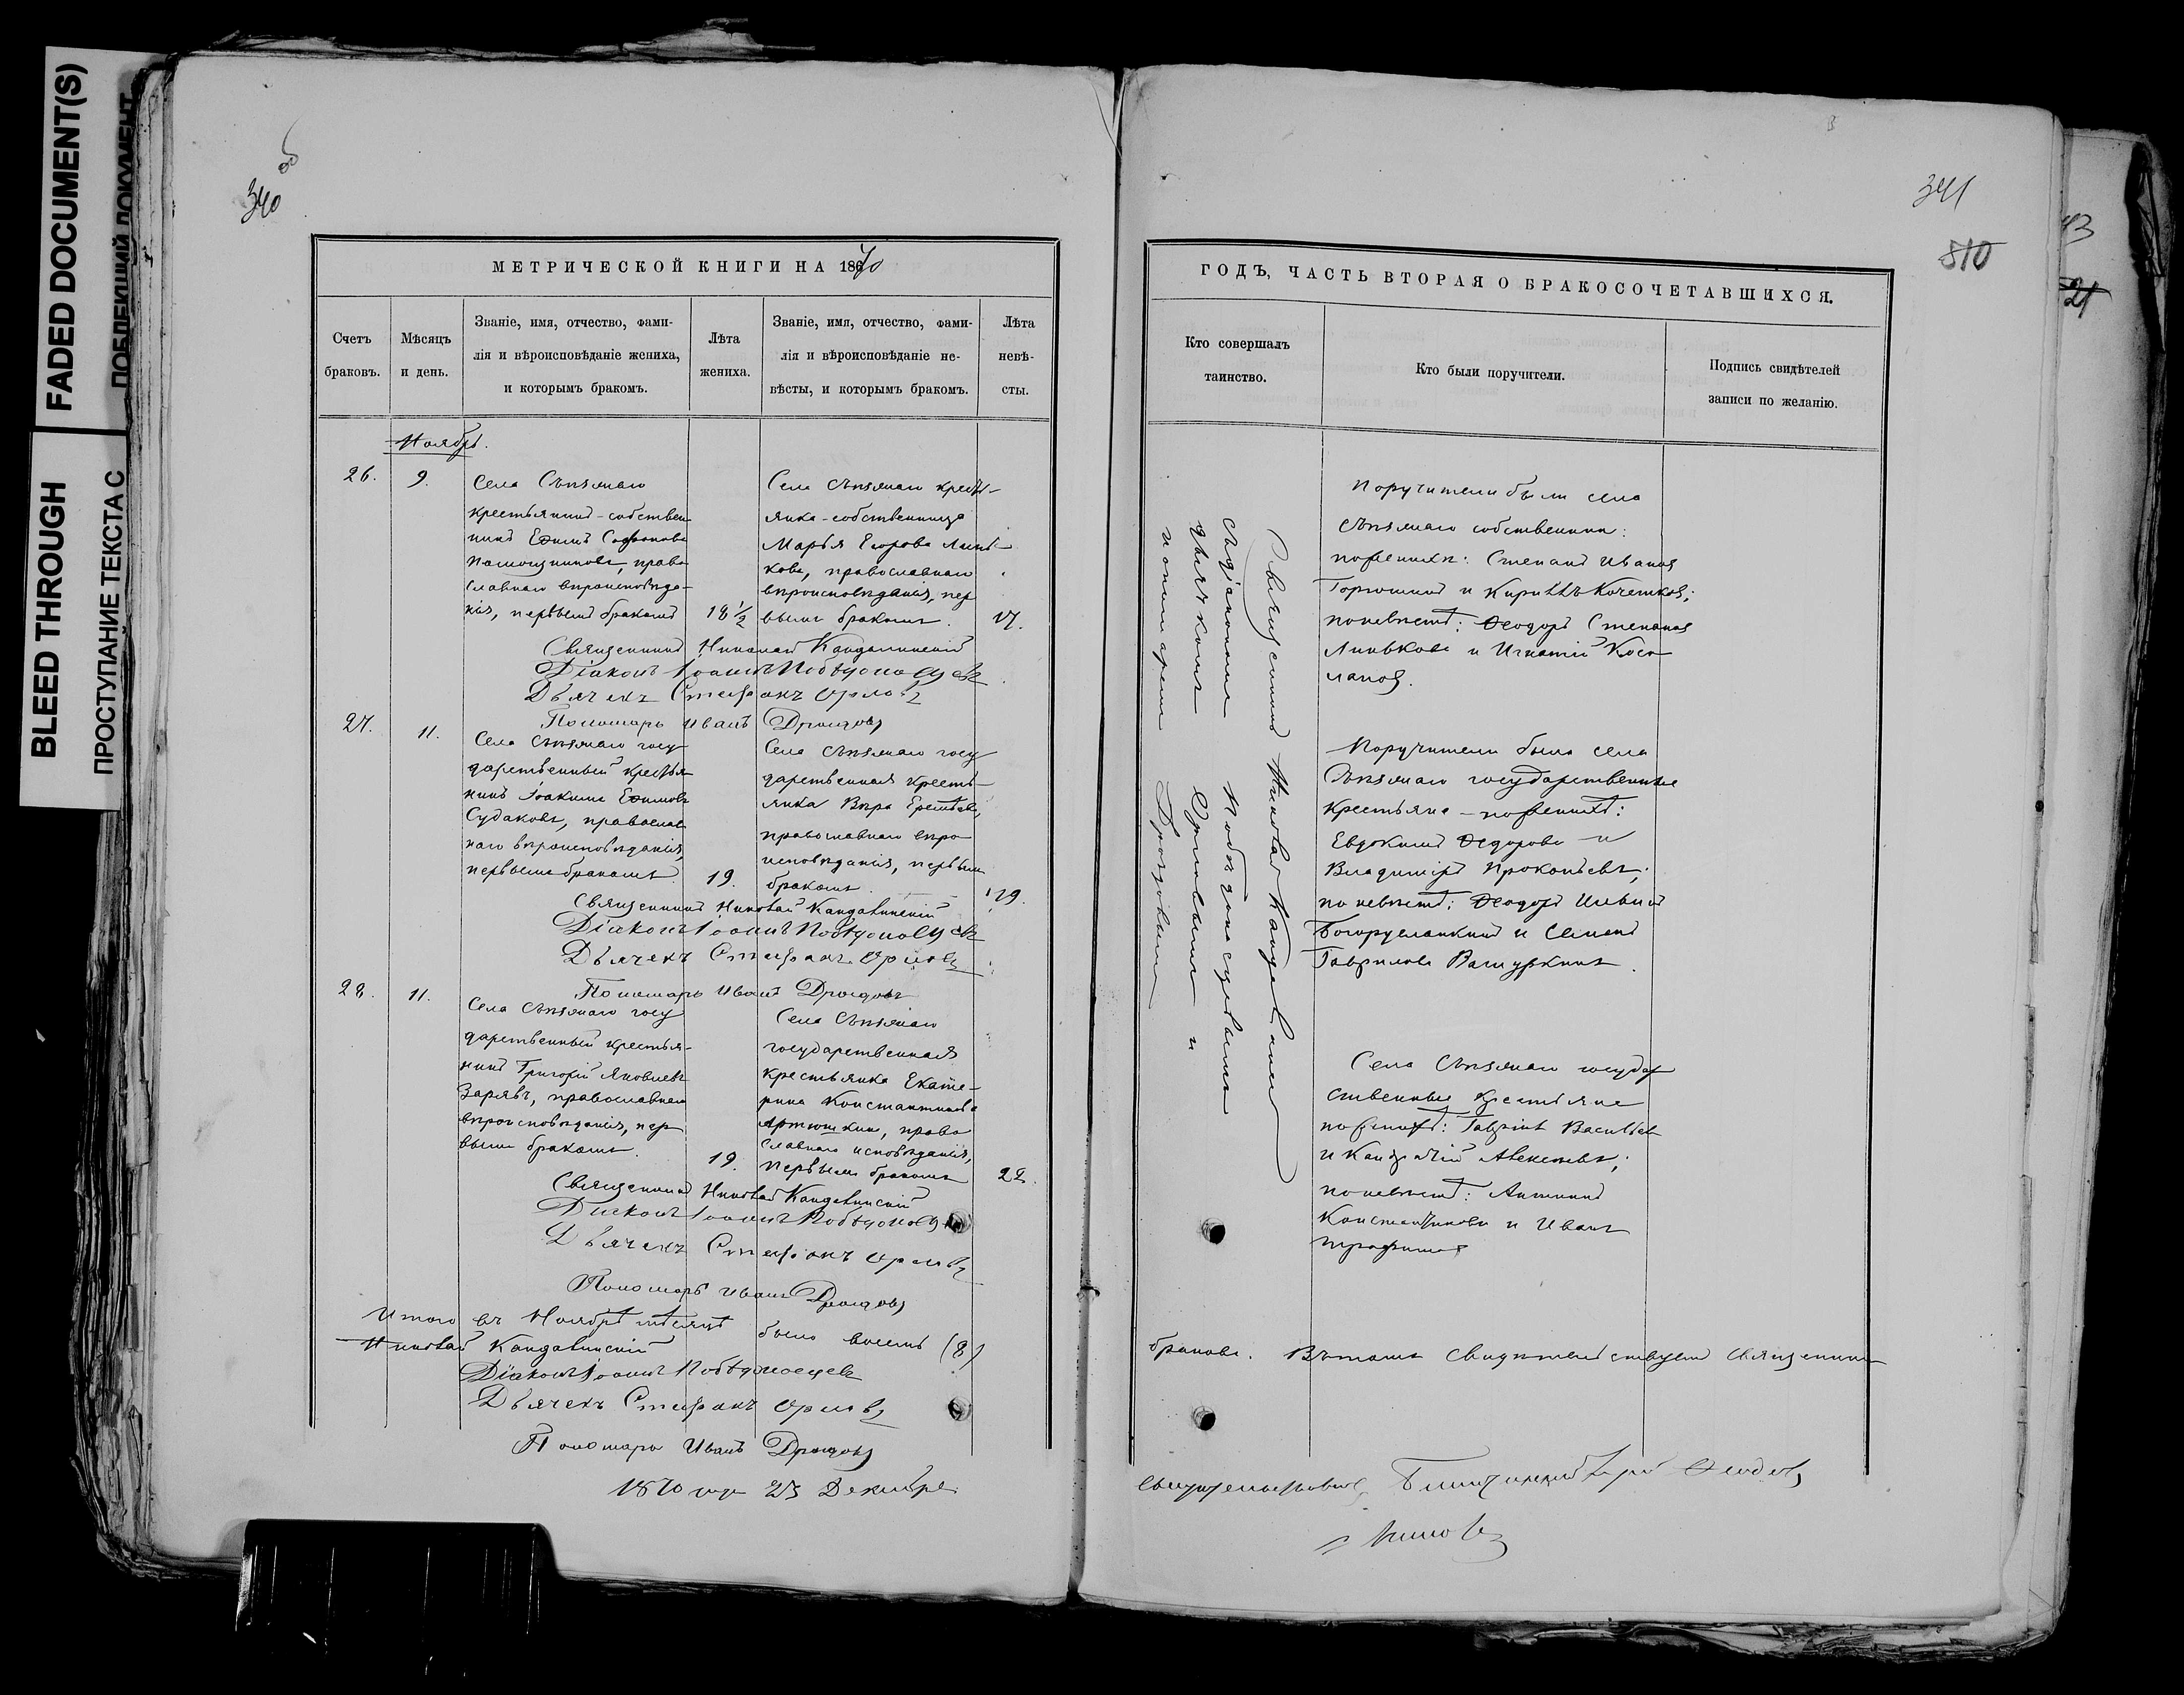 FADED DOCUMENT(S)
BLEED THROUGH
ПРОСТУПАНИЕ ТЕКСТА С
340
об
МЕТРИЧЕСКОЙ КНИГИ НА 1870
Счетъ
браковъ.
Мѣсяцъ
и день.
Званіе, имя, отчество, фами-
лія и вѣроисповѣданіе жениха,
и которымъ бракомъ.
Лѣта
жениха.
Званіе, имя, отчество, фами-
лія и вѣроисповѣданіе не-
вѣсты, и которымъ бракомъ.
Лѣта
невѣ-
сты.
Ноябрь.
26.
9.
Села
крестьянинъ-собствен
никъ Ефимъ Софронов
право
славнаго вѣроисповѣда-
нія, первымъ бракомъ
18 1/2
Села кресть-
янка-собственница
Марья Егорова Линь-
кова, православнаго
вѣроисповѣданія, пер
вымъ бракомъ.
17.
Священникъ Николай Кандалинскій
Діаконъ Іоаннъ Побѣдоносцевъ
Дьячекъ Стефанъ Орловъ
Пономарь Иванъ Дроздовъ
27.
11.
Села госу
дарственный крестья
нинъ Іоакимъ Ефимовъ
Судаковъ, православ
наго вѣроисповѣданія,
первымъ бракомъ
19.
Села госу
дарственная кресть-
янка Вѣра
православнаго вѣро
исповѣданія, первымъ
бракомъ.
19.
Священникъ Николай Кандалинскій
Діаконъ Іоаннъ Побѣдоносцевъ
Дьячекъ Стефанъ Орловъ
Пономарь Иванъ Дроздовъ
28.
11.
Села госу
дарственный крестья-
нинъ Григорій Яковлевъ
православнаго
вѣроисповѣданія, пер
вымъ бракомъ.
19.
Села
государственная
крестьянка Екате-
рина Константинова
Артюшкина, право
славнаго исповѣданія,
первымъ бракомъ
22.
Священникъ Николай Кандалинскій
Діаконъ Іоаннъ Побѣдоносцевъ
Дьячекъ Стефанъ Орловъ
Пономарь Иванъ Дроздовъ
Итого въ Ноябрѣ мѣсяцѣ было восемь (8)
Николай Кандалинскій
Діаконъ Іоаннъ Побѣдоносцевъ
Дьячекъ Стефанъ Орловъ
Пономарь Иванъ Дроздовъ
1870 года 23 Декабря
341
810
ГОДЪ, ЧАСТЬ ВТОРАЯ О БРАКОСОЧЕТАВШИХСЯ.
Кто совершалъ
таинство.
Кто были поручители.
Подпись свидѣтелей
записи по желанію.
Священникъ Николай Кандалинскій
съ діакономъ Побѣдоносцевымъ
дьячкомъ Орловымъ и
пономаремъ Дроздовымъ
Поручители были села
собственники:
по женихѣ: Степанъ Ивановъ
и Кириллъ Кочетковъ;
по невѣстѣ: Ѳеодоръ Степановъ
Линьковъ и Игнатій
Поручители были села
государственные
крестьяне - по женихѣ:
Евдокимъ Ѳедоровъ и
Владиміръ Прокопьевъ;
по невѣстѣ: Ѳеодоръ Ильинъ
и Семенъ
Гавриловъ
Села государ
ственные крестьяне
по женихѣ: Гавріилъ Васильевъ
и Алексѣевъ;
по невѣстѣ:
Константиновъ и Иванъ
Трофимовъ
браковъ. Въ томъ свидѣтельствуетъ священникъ
свидѣтельствовалъ Благочинный Іерей
43
21